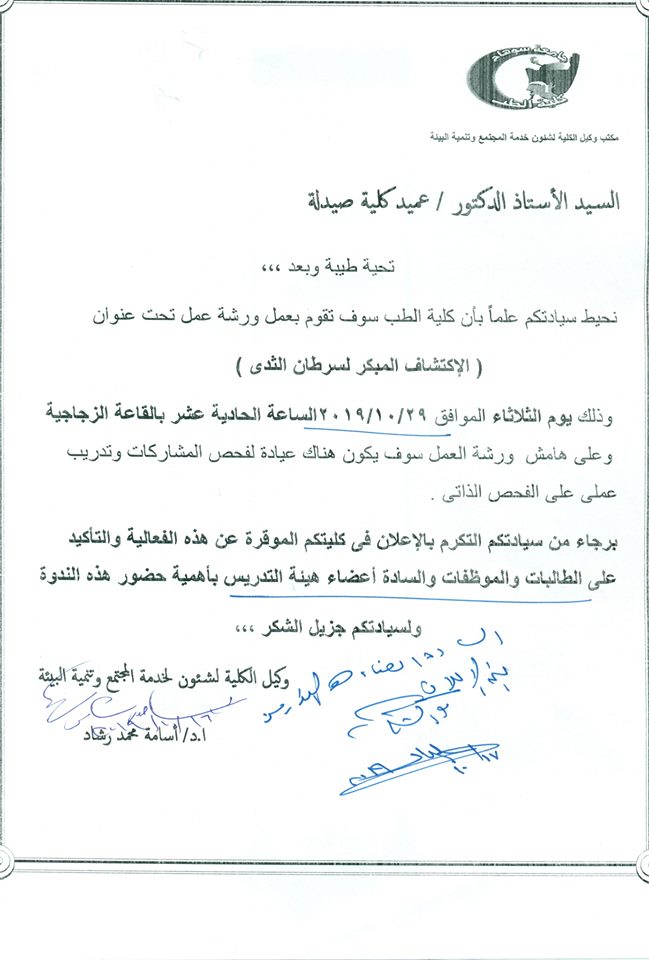 جامعة سوهاج
كلية الطب
مكتب وكيل الكلية لشئون خدمة المجتمع وتنمية البيئة
السيد الأستاذ الدكتور / عميد كلية صيدلة
تحية طيبة وبعد ،،،
نحيط سيادتكم علماً بأن كلية الطب سوف تقوم بعمل ورشة عمل تحت عنوان
( الإكتشاف المبكر لسرطان الثدى )
وذلك يوم الثلاثاء الموافق ٢٠١٩/١٠/٢٩الساعة الحادية عشر بالقاعة الزجاجية
وعلى هامش ورشة العمل سوف يكون هناك عيادة لفحص المشاركات وتدريب
عملى على الفحص الذاتى .
برجاء من سيادتكم التكرم بالإعلان فى كليتكم الموقرة عن هذه الفعالية والتأكيد
على الطالبات والموظفات والسادة أعضاء هيئة التدريس بأهمية حضور هذه الندوة
ولسيادتكم جزيل الشكر ،،،
وكيل الكلية لشئون لخدمة المجتمع وتنمية البيئة
ا.د/ أسامة محمد رشاد